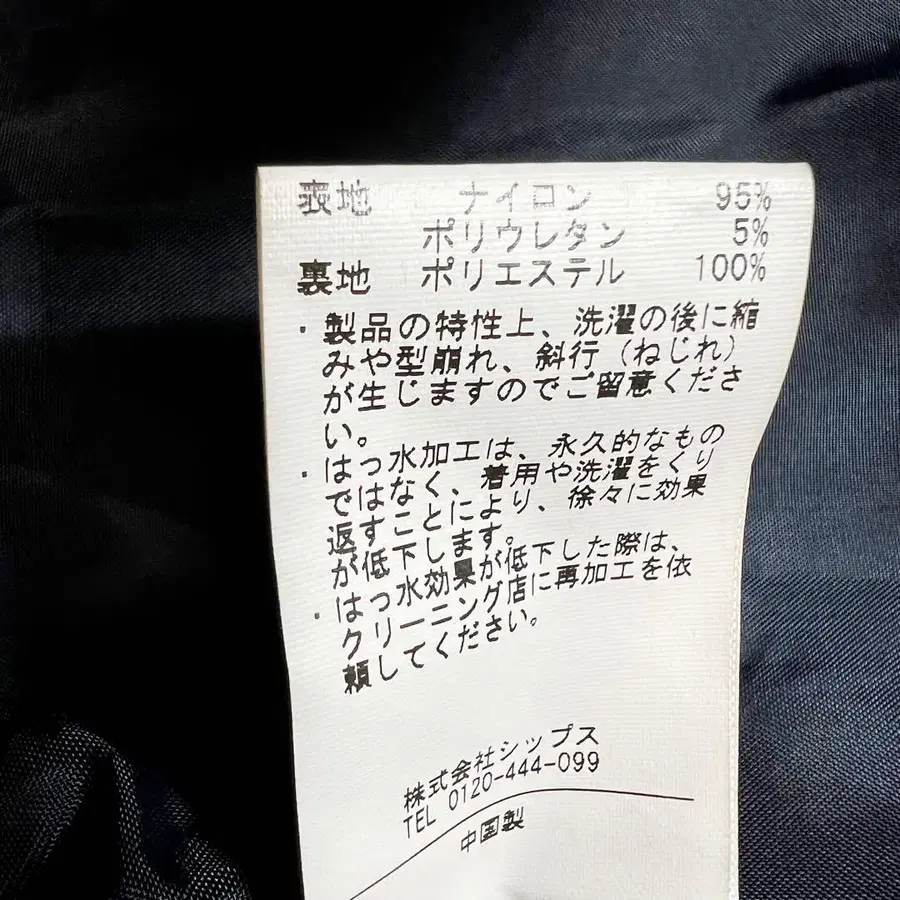 表地 ナイロン 95%
ポリウレタン 5%
裏地 ポリエステル 100%
・製品の特性上、洗濯の後に縮
みや型崩れ、斜行(ねじれ)
が生じますのでご留意くださ
い。
・はっ水加工は、永久的なもの
ではなく、着用や洗濯をくり
返すことにより、徐々に効果
が低下します。
・はっ水効果が低下した際は、
クリーニング店に再加工を依
頼してください。
株式会社シップス
TEL 0120-444-099
中国製